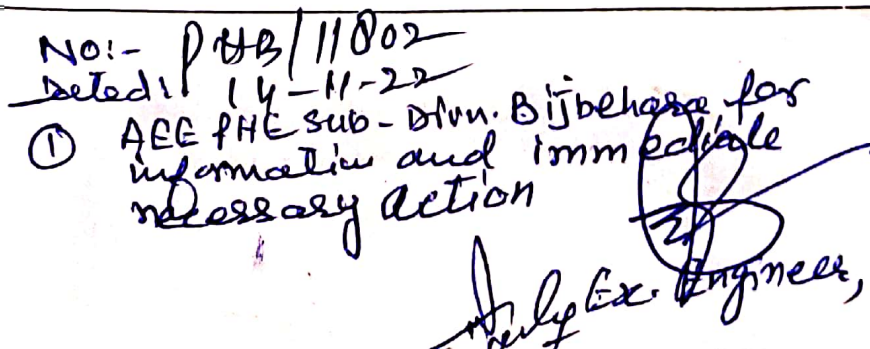 No:- PHB/11802
Dated: 14-11-22
① AEE PHE Sub-Divn. Bijbehara for
information and immediate
necessary action
Ex. Engineer,